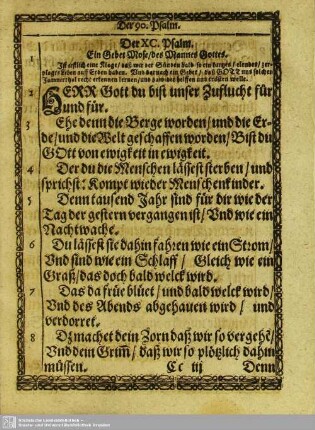 Der 90. Psalm.
Der XC. Psalm.
1 Ein Gebet Mose/des Mannes Gottes.
Ist erstlich eine Klage/daß wir der Sünden halb so ein kurtzes/elendes/zer-
plagtes Leben auff Erden haben. Und darnach ein Gebet/daß GOTT uns solchen
Jammerthal recht erkennen lernen/uns auch helffen und trösten wolle.
2 HERR Gott du bist unser Zuflucht für
und für.
3 Ehe denn die Berge worden/und die Er-
de/und die Welt geschaffen worden/Bist du
GOtt von ewigkeit in ewigkeit.
4 Der du die Menschen lässest sterben/und
sprichst: Kompt wieder Menschenkinder.
5 Denn tausend Jahr sind für dir wie der
Tag der gestern vergangen ist/Und wie ein
Nachtwache.
6 Du lässest sie dahin fahren wie ein Strom/
Und sind wie ein Schlaff/Gleich wie ein
Graß/das doch bald welck wird.
7 Das da früe blüet/und bald welck wird/
Und des Abends abgehauen wird/und
verdorret.
8 Dz machet dein Zorn daß wir so vergehē/
Und dein Grim̄/daß wir so plötzlich dahin
müssen.
Cc iij Denn
Sächsische Landesbibliothek -
Staats- und Universitätsbibliothek Dresden